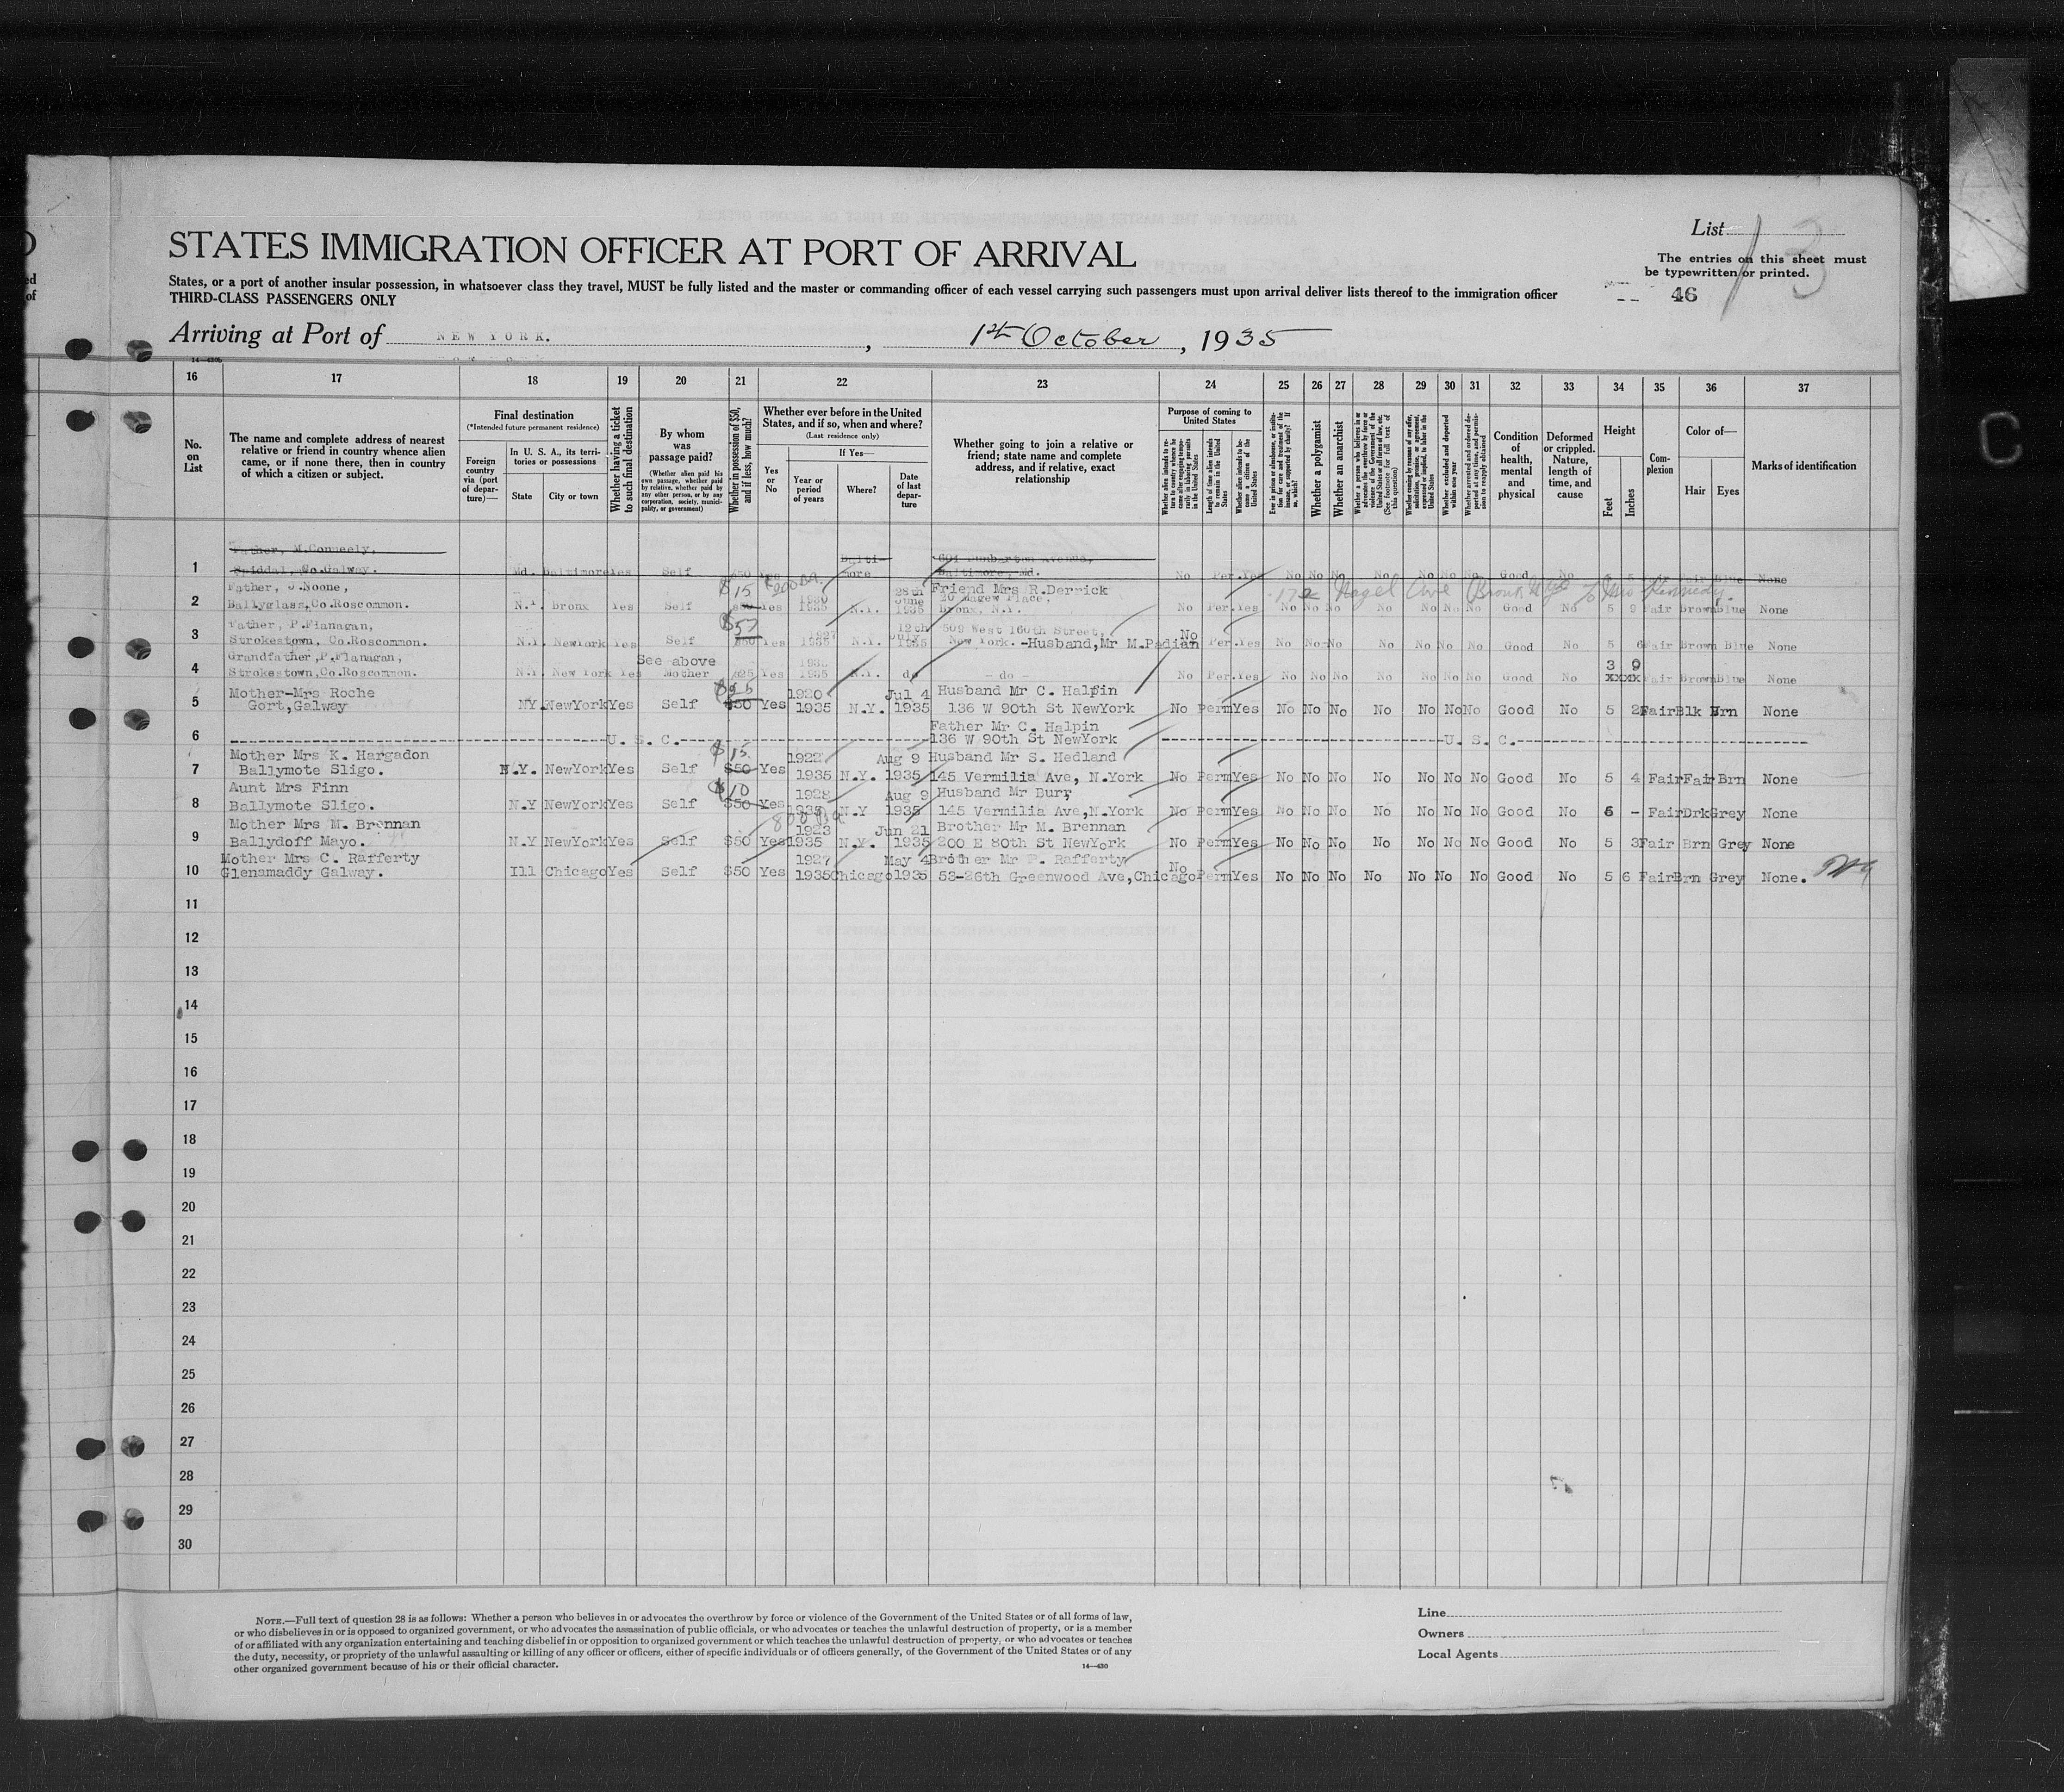 STATES IMMIGRATION OFFICER AT PORT OF ARRIVAL
List 13
The entries on this sheet must
be typewritten or printed.
46
States, or a port of another insular possession, in whatsoever class they travel, MUST be fully listed and the master or commanding officer of each vessel carrying such passengers must upon arrival deliver lists thereof to the immigration officer
THIRD-CLASS PASSENGERS ONLY
Arriving at Port of NEW YORK. , 1st October , 1935
16 17 18 19 20 21 22 23 24 25 26 27 28 29 30 31 32 33 34 35 36 37
No. on List
The name and complete address of nearest
relative or friend in country whence alien
came, or if none there, then in country
of which a citizen or subject.
Final destination
(*Intended future permanent residence)
Foreign country via (port of departure)—
In U. S. A., its territories or possessions
State
City or town
Whether having a ticket to such final destination
By whom was passage paid?
(Whether alien paid his own passage, whether paid by relative, whether paid by any other person, or by any corporation, society, municipality, or government)
Whether in possession of $50, and if less, how much?
Whether ever before in the United States, and if so, when and where?
(Last residence only)
Yes or No
If Yes—
Year or period of years
Where?
Date of last departure
Whether going to join a relative or
friend; state name and complete
address, and if relative, exact
relationship
Purpose of coming to United States
Length of time alien intends to remain in the United States
Whether alien intends to become a citizen of the United States
Whether a polygamist
Whether an anarchist
(See footnote for full text of this question)
Whether excluded and deported within one year
Condition of health, mental and physical
Deformed or crippled. Nature, length of time, and cause
Height
Feet
Inches
Complexion
Color of—
Hair
Eyes
Marks of identification
1 Father, M.Conneely,
Spiddal, Co.Galway. Md. Baltimore Yes Self $50 Yes Baltimore Baltimore, Md. No Per. Yes No No No No No No No Good No Fair Fair Blue None
2 Father, J.Noone,
Ballyglass,Co.Roscommon. N.Y. Bronx Yes Self $15 $50 Yes 1930 1935 N.Y. 28th June 1935 Friend Mrs R.Derrick
Bronx, N.Y. No Per. Yes No No No No No No No Good No 5 9 Fair Brown Blue None
172 Nagel Ave Bronx NY c/o Mrs Kennedy.
3 Father, P.Flanagan,
Strokestown, Co.Roscommon. N.Y. NewYork Yes Self $57 $50 Yes 1927 1935 N.Y. 12th July 1935 509 West 160th Street,
New York. -Husband,Mr M.Padian No Per. Yes No No No No No No No Good No 5 6 Fair Brown Blue None
4 Grandfather,P.Flanagan,
Strokestown,Co.Roscommon. N.Y. New York Yes See above Mother Yes 1935 N.Y. do - do - No Per. Yes No No No No No No No Good No 3 9 xxxx Fair Brown Blue None
5 Mother-Mrs Roche
Gort,Galway NY. NewYork Yes Self $50 Yes 1920 1935 N.Y. Jul 4 1935 Husband Mr C. Halpin
136 W 90th St NewYork No Perm Yes No No No No No No No Good No 5 2 Fair Blk Brn None
6 U. S. C. Father Mr C. Halpin
136 W 90th St NewYork U. S. C.
7 Mother Mrs K. Hargadon
Ballymote Sligo. N.Y. NewYork Yes Self $15 $50 Yes 1922 1935 N.Y. Aug 9 1935 Husband Mr S. Hedland
145 Vermilia Ave, N.York No Perm Yes No No No No No No No Good No 5 4 Fair Fair Brn None
8 Aunt Mrs Finn
Ballymote Sligo. N.Y NewYork Yes Self $10 $50 Yes 1928 1935 N.Y Aug 9 1935 Husband Mr Burr
145 Vermilia Ave,N.York No Perm Yes No No No No No No No Good No 6 - Fair Drk Grey None
9 Mother Mrs M. Brennan
Ballydoff Mayo. N.Y NewYork Yes Self $50 Yes 1923 1935 N.Y. Jun 21 1935 Brother Mr M. Brennan
200 E 80th St NewYork No Perm Yes No No No No No No No Good No 5 3 Fair Brn Grey None
10 Mother Mrs C. Rafferty
Glenamaddy Galway. Ill Chicago Yes Self $50 Yes 1927 1935 Chicago May 4 1935 Brother Mr P. Rafferty
52-26th Greenwood Ave,Chicago No Perm Yes No No No No No No No Good No 5 6 Fair Brn Grey None.
11
12
13
14
15
16
17
18
19
20
21
22
23
24
25
26
27
28
29
30
NOTE.—Full text of question 28 is as follows: Whether a person who believes in or advocates the overthrow by force or violence of the Government of the United States or of all forms of law,
or who disbelieves in or is opposed to organized government, or who advocates the assassination of public officials, or who advocates or teaches the unlawful destruction of property, or is a member
of or affiliated with any organization entertaining and teaching disbelief in or opposition to organized government or which teaches the unlawful destruction of property, or who advocates or teaches
the duty, necessity, or propriety of the unlawful assaulting or killing of any officer or officers, either of specific individuals or of officers generally, of the Government of the United States or of any
other organized government because of his or their official character.
14—430
Line
Owners
Local Agents
C